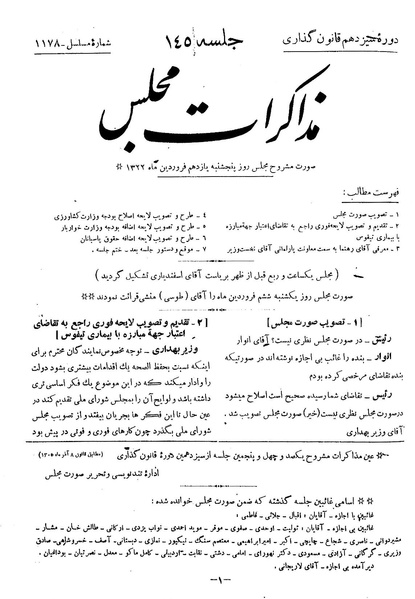 دورهٔ سیزدهم قانون گذاری
جلسه ۱۴۵
شمارهٔ مسلسل - ۱۱۷۸
مذاکرات مجلس
صورت مشروح مجلس روز پنجشنبه یازدهم فروردین ماه ۱۳۲۲ *
فهرست مطالب:
۱ - تصویب صورت مجلس
۲ - تقدیم و تصویب لایحه فوری راجع به تقاضای اعتبار جهة مبارزه
با بیماری تیفوس
۳ - معرفی آقای رهنما به سمت معاونت پارلمانی آقای نخست‌وزیر
۴ - طرح و تصویب لایحه اصلاح بودجه وزارت کشاورزی
۵ - طرح و تصویب لایحه اضافه بودجه وزارت خواربار
۶ - طرح و تصویب لایحه اضافه حقوق پاسبانان
۷ - موقع و دستور جلسه بعد - ختم جلسه.
(مجلس یکساعت و ربع قبل از ظهر بریاست آقای اسفندیاری تشکیل گردید)
صورت مجلس روز یکشنبه ششم فروردین ماه را آقای (طوسی) منشی قرائت نمودند **
[۱ - تصویب صورت مجلس]
رئیس - در صورت مجلس نظری نیست؟ آقای انوار
انوار - بنده را غائب بی اجازه نوشته‌اند در صورتیکه
بنده تقاضای مرخصی کرده بودم
رئیس - تقاضای شما رسیده صحیح است اصلاح میشود
در صورت مجلس نظری نیست (خیر) صورت مجلس تصویب شد.
آقای وزیر بهداری
[۲ - تقدیم و تصویب لایحه فوری راجع به تقاضای
اعتبار جهة مبارزه با بیماری تیفوس]
وزیر بهداری - توجه مخصوص نمایندگان محترم برای
اینکه نسبت بحفظ الصحه یک اقدامات بیشتری بشود دولت
را وادار میکند که در این موضوع یک فکر اساسی تری
داشته باشد و لوایح آن را بمجلس شورای ملی تقدیم کند در
عین حال تا این فکرها بجریان بیفتد و از تصویب مجلس
شورای ملی بگذرد چون کارهای فوری و فوتی در پیش بود
* عین مذاکرات مشروح یکصد و چهل و پنجمین جلسه از سیزدهمین دورهٔ قانون گذاری (مطابق قانون ۸ آذر ماه ۱۳۰۵)
ادارهٔ تندنویسی و تحریر صورت مجلس
** اسامی غائبین جلسه گذشته که ضمن صورت مجلس خوانده شده:
غائبین با اجازه - آقایان: اقبال - جلائی - فاطمی.
غائبین بی اجازه - آقایان: تولیت - اوحدی - صفوی - موقر - موید احمدی - نواب یزدی - اردکانی - طالش خان - مشار -
مشیردوانی - ناصری - شجاع - چایچی - اکبر - امیرابراهیمی - معتصم سنگ - نیک‌پور - نمازی - دبستانی - آصف - خسروشاهی - صادق
وزیری - گرگانی - آزادی - مسعودی - دکتر نهورای - امامی - دشتی - نقابت - اردبیلی - کامل ماکو - معدل - نصرتیان - بوداغیان.
دیرآمده بی اجازه - آقای لاریجانی.
- ۱ -